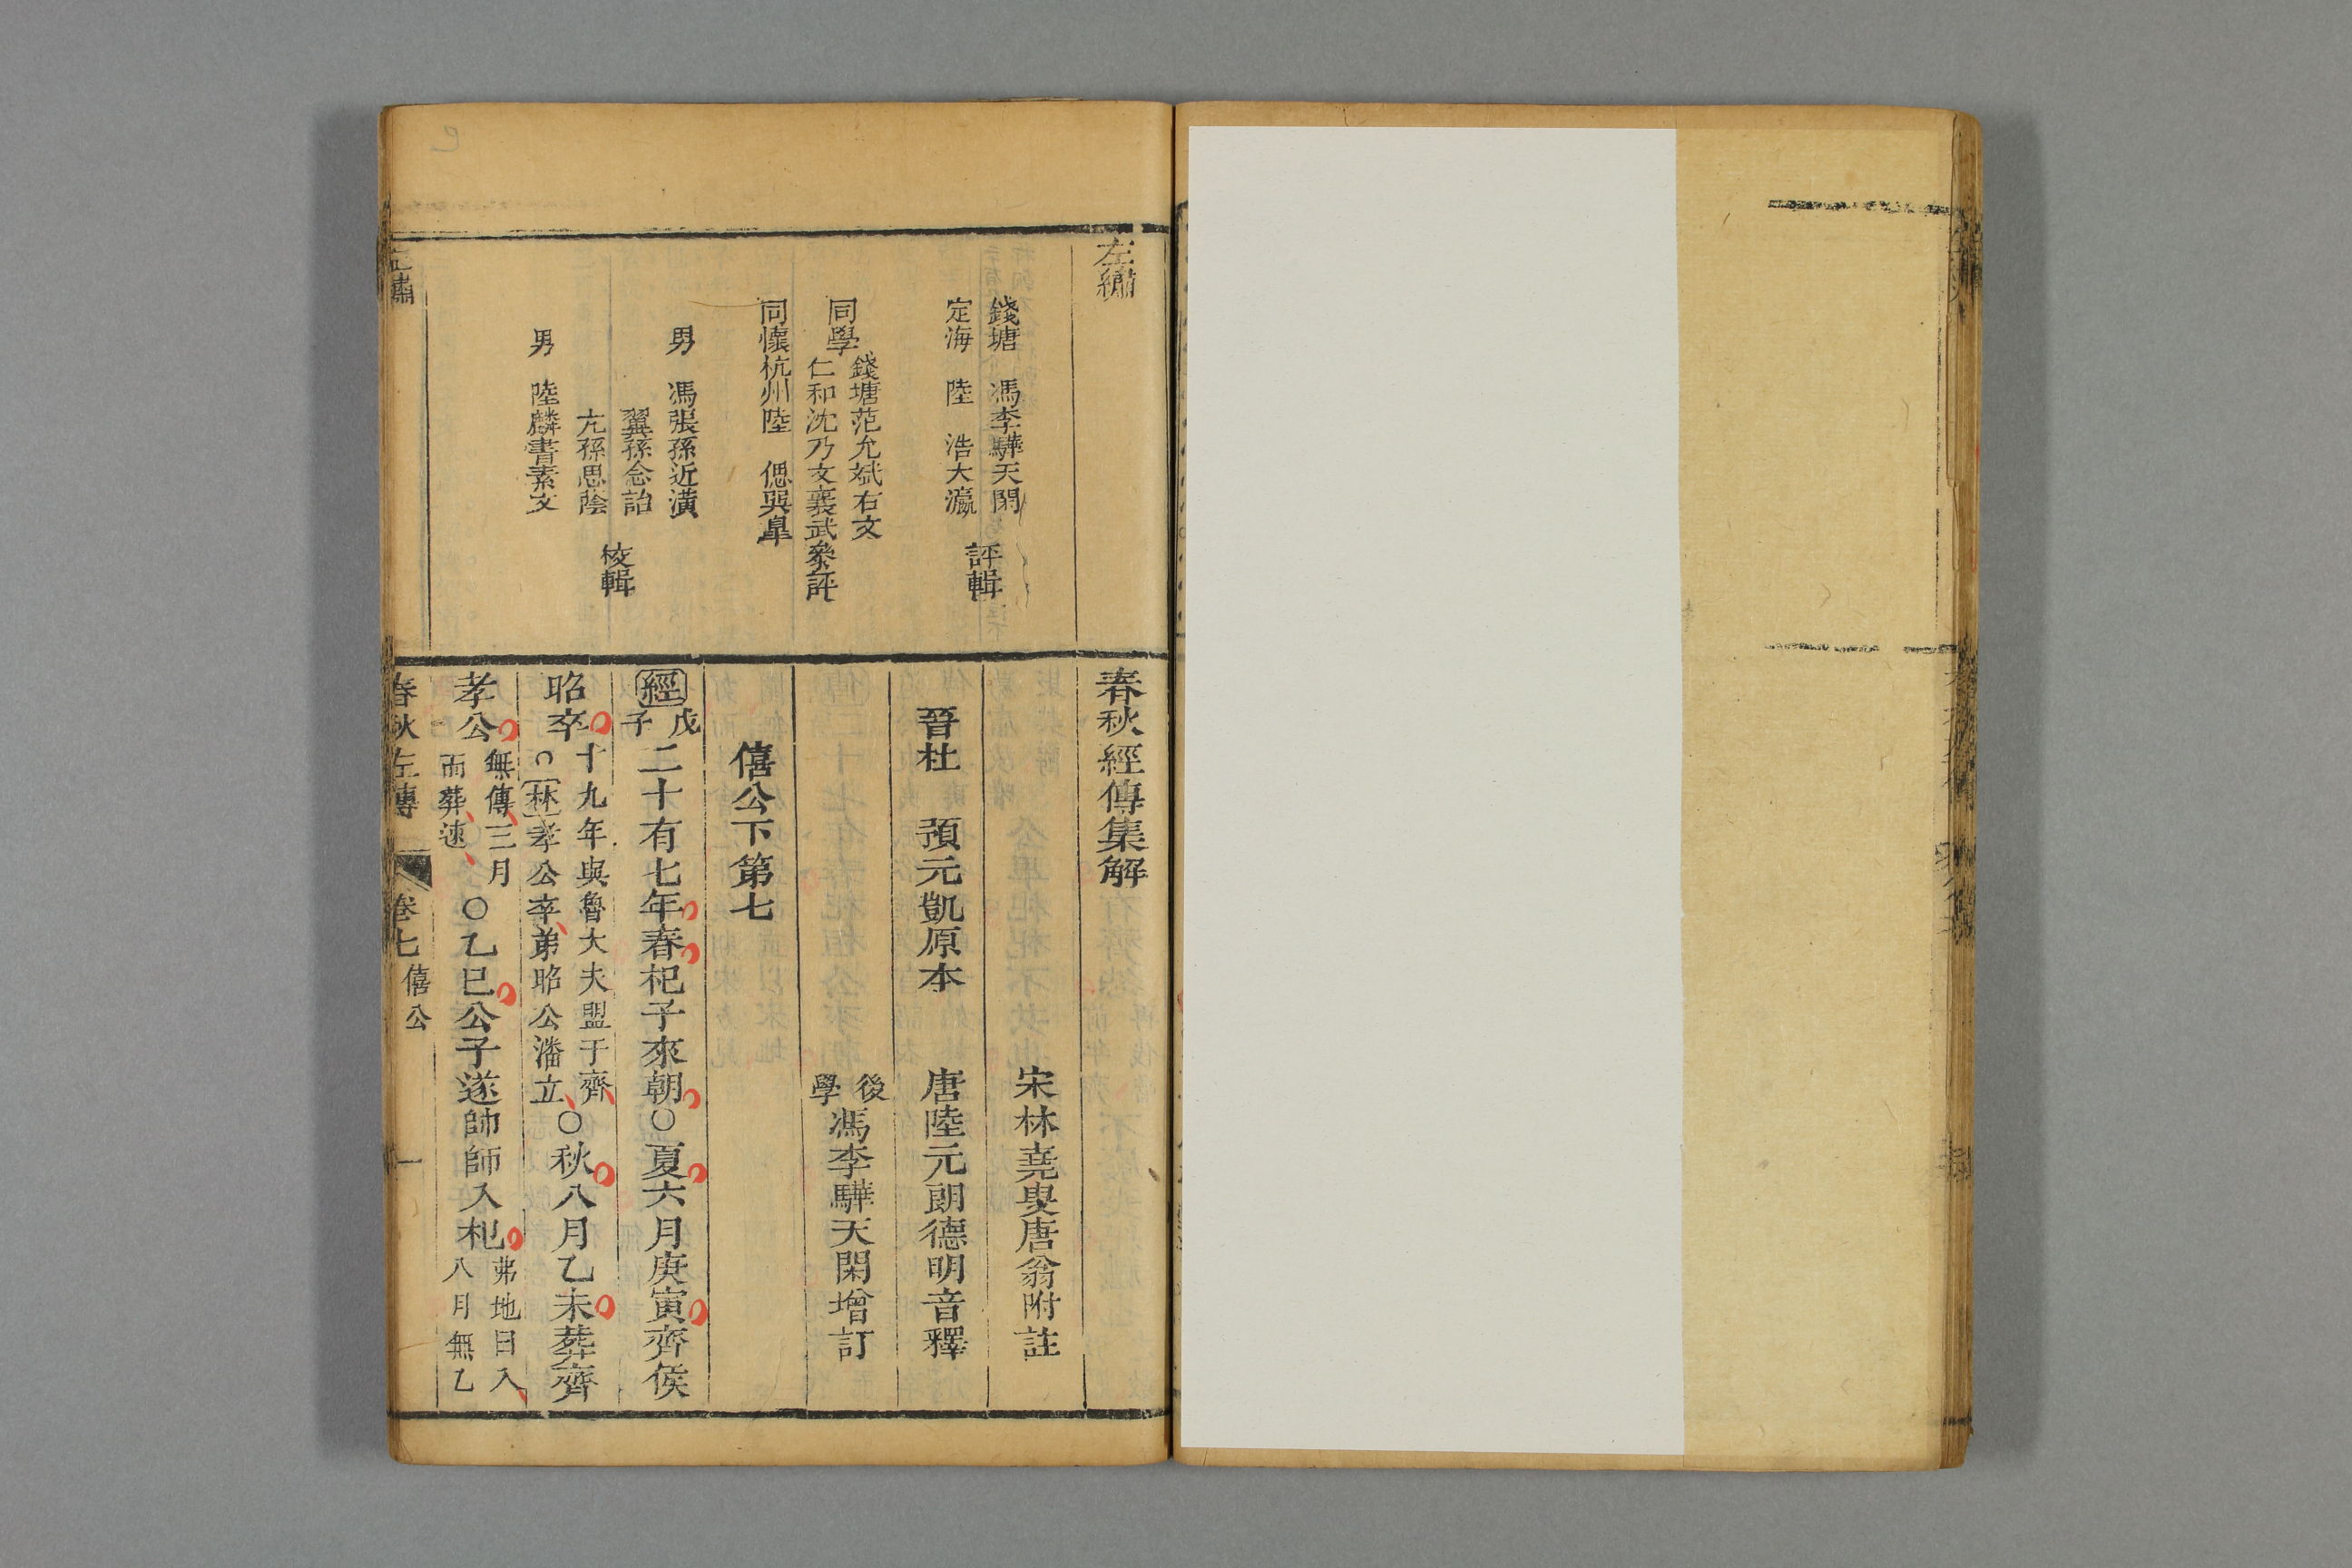 左繡
錢塘 馮李驊天閑
定海 陸 浩大瀛
評輯
同學
錢塘范允斌右文
仁和沈乃文襄武
同懷杭州陸 偲巽皐
參評
男 馮張孫近潢
翼孫念詒
亢孫思蔭
男 陸麟書素文
校輯
春秋經傳集解
宋林堯叟唐翁附註
晉杜 預元凱原本 唐陸元朗德明音釋
後學馮李驊天閑增訂
僖公下第七
經戊子二十有七年春杞子來朝○夏六月庚寅齊侯
昭卒十九年與魯大夫盟于齊○林孝公卒弟昭公潘立○秋八月乙未葬齊
孝公無傳三月而葬速○乙巳公子遂帥師入杞弗地曰入八月無乙
春秋左傳 卷七 僖公 一